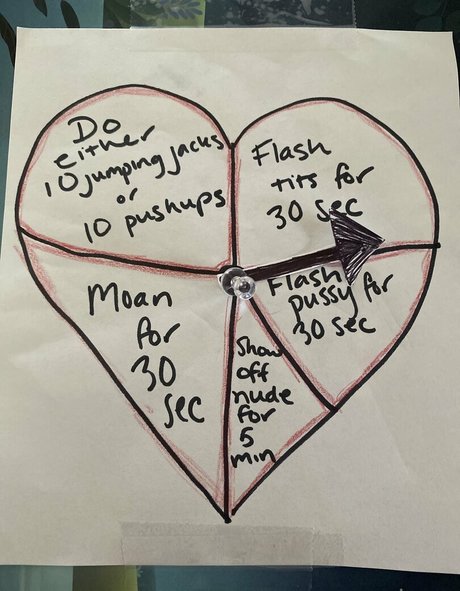 Do
either
10 jumping jacks
or
10 pushups
Flash
tits for
30 sec
Flash
pussy for
30 sec
Show
off
nude
for
5
min
Moan
for
30
sec